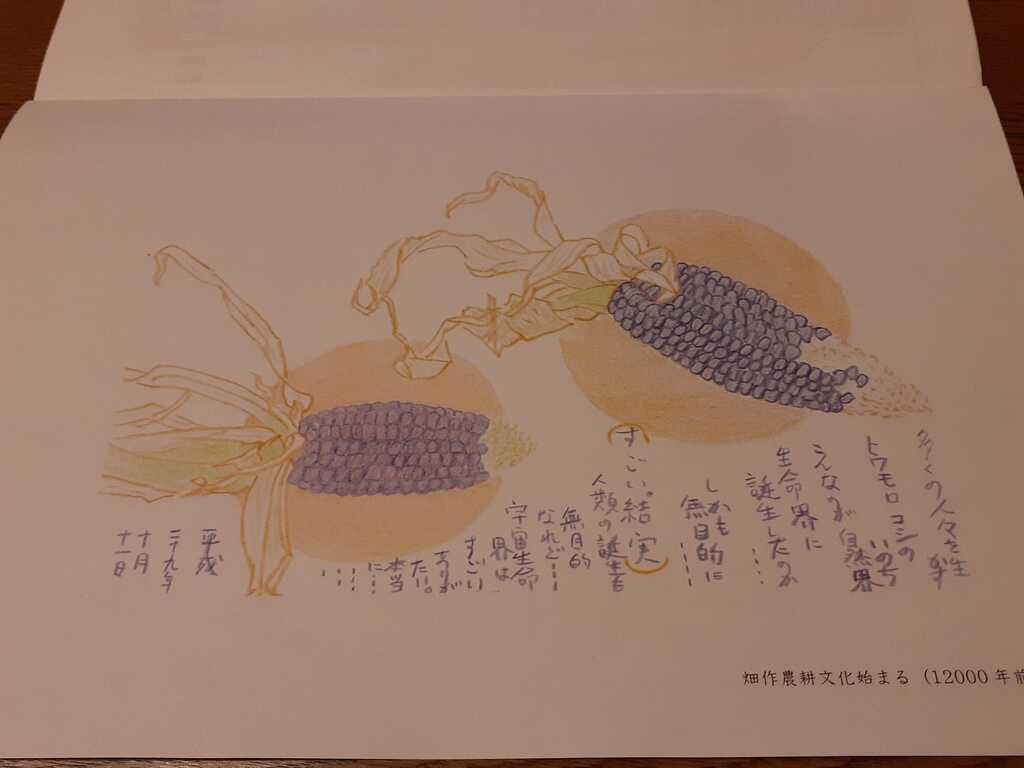 多くの人々を生
かす
トウモロコシの
いのち
自然界
生命界に
誕生したのか
・・・
しかも
無目的に
・・・・
すごい。結実
人類の誕生も
無目的
なれど・・・
宇宙生命
界は
すごい
ありが
たい。
本当
に・・・
・・・
平成
二十九年
十月
十一日
畑作農耕文化始まる (12000年前